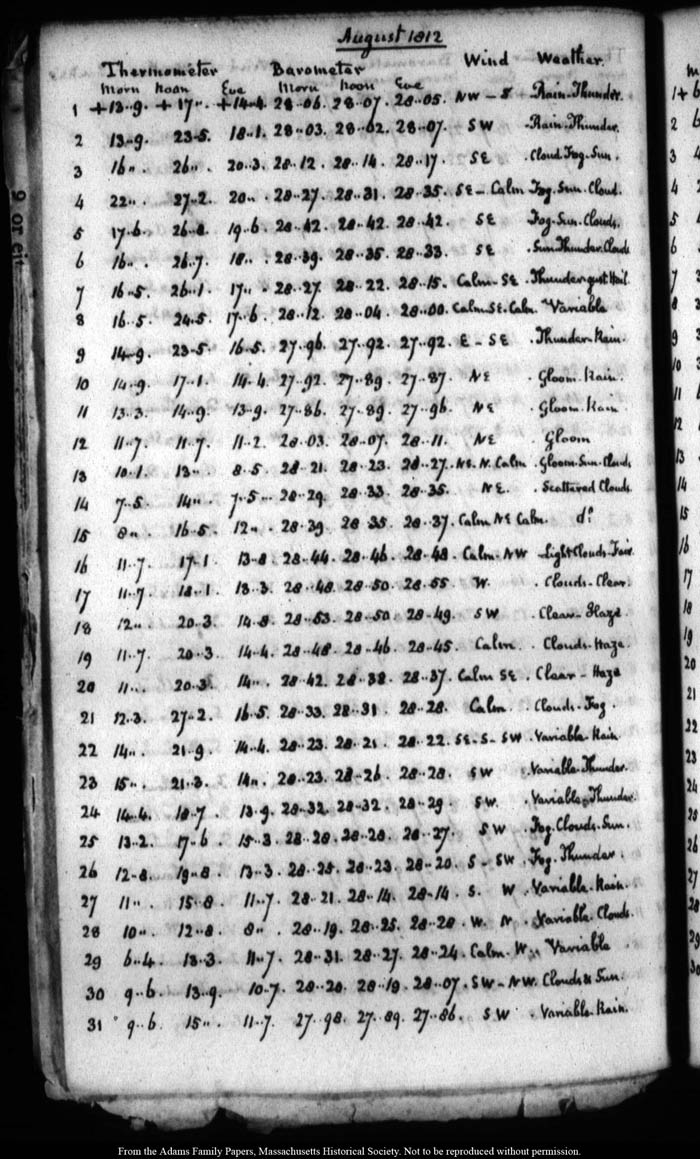 August 1812
Thermometer Barometer Wind Weather
Morn Noon Eve Morn Noon Eve
1 +13..9. +17.. +14..4. 28..06. 28..07. 28..05. NW - S Rain. Thunder.
2 13..9. 23..5. 18..1. 28..03. 28..02. 28..07. SW Rain. Thunder.
3 16.. 26.. 20..3. 28..12. 28..14. 28..17. SE Cloud Fog. Sun.
4 22.. 27..2. 20.. 28..27. 28..31. 28..35. SE - Calm Fog. Sun. Cloud.
5 17..6. 26..8. 19..6. 28..42. 28..42. 28..42. SE Fog. Sun. Clouds.
6 16.. 26..7. 18.. 28..39. 28..35. 28..33. SE Sun Thunder. Clouds
7 16..5. 26..1. 17.. 28..27. 28..22. 28..15. Calm - SE. Thundergust Hail.
8 16..5. 24..5. 17..6. 28..12. 28..04. 28..00. Calm. SE. Calm. Variable
9 14..9. 23..5. 16..5. 27..96. 27..92. 27..92. E - SE Thunder. Rain.
10 14..9. 17..1. 14..4. 27..92. 27..89. 27..87. NE Gloom. Rain.
11 13..3. 14..9. 13..9. 27..86. 27..89. 27..96. NE Gloom. Rain
12 11..7. 11..7. 11..2. 28..03. 28..07. 28..11. NE Gloom
13 10..1. 13.. 8..5. 28..21. 28..23. 28..27. NE. N. Calm. Gloom. Sun. Clouds
14 7..5. 14.. 7..5.. 28..29. 28..33. 28..35. NE. Scattered Clouds
15 8.. 16..5. 12.. 28..39. 28..35. 28..37. Calm NE Calm. do
16 11..7. 17..1. 13..8. 28..44. 28..46. 28..48. Calm. NW Light Clouds. Fair.
17 11..7. 18..1. 13..3. 28..48. 28..50. 28..55 W. Clouds - Clear.
18 12.. 20..3. 14..8. 28..53. 28..50. 28..49. SW Clear - Haze
19 11..7. 20..3. 14..4. 28..48. 28..46. 28..45. Calm. Clouds. Haze.
20 11.. 20..3. 14.. 28..42. 28..38. 28..37. Calm SE. Clear - Haze
21 12..3. 27..2. 16..5. 28..33. 28..31. 28..28. Calm. Clouds. Fog.
22 14.. 21..9. 14..4. 28..23. 28..21. 28..22. SE - S - SW. Variable. Rain.
23 15.. 21..3. 14.. 28..23. 28..26. 28..28. SW Variable. Thunder.
24 14..4. 18..7. 13..9. 28..32. 28..32. 28..29 SW. Variable. Thunder.
25 13..2. 17..6 15..3. 28..28. 28..28. 28..27. SW Fog. Clouds. Sun.
26 12..8. 19..8. 13..3. 28..25. 28..23. 28..20. S - SW. Fog. Thunder.
27 11.. 15..8. 11..7. 28..21. 28..14. 28..14. S. W. Variable. Rain.
28 10.. 12..8. 8.. 28..19. 28..25. 28..28. W. N. Variable. Clouds.
29 6..4. 13..3. 11..7. 28..31. 28..27. 28..24. Calm. W. Variable
30 9..6. 13..9. 10..7. 28..20. 28..19. 28..07. SW - NW. Clouds & Sun.
31 9..6. 15.. 11..7. 27..98. 27..89. 27..86. SW Variable. Rain.
From the Adams Family Papers, Massachusetts Historical Society. Not to be reproduced without permission.